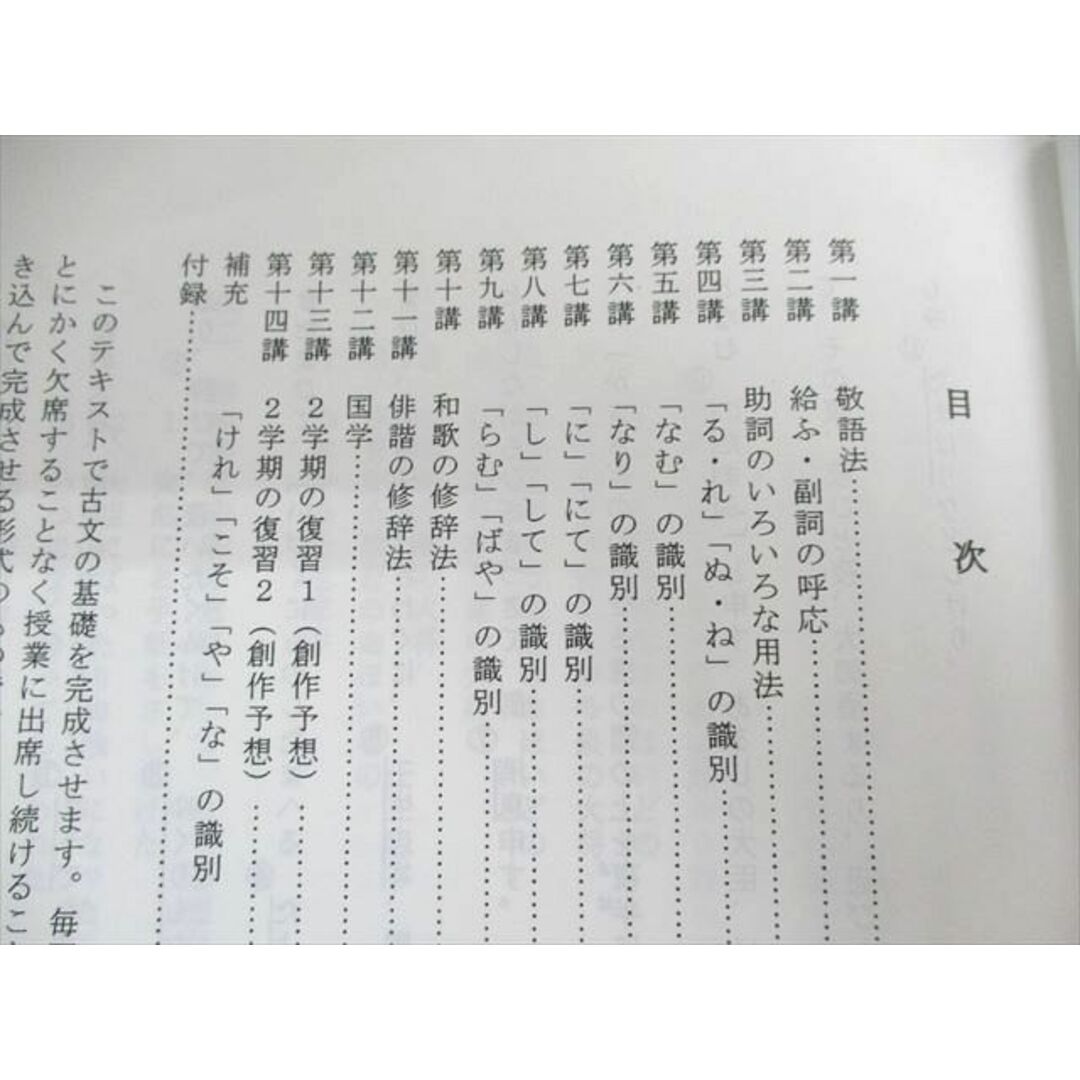 目次
第一講 敬語法
第二講 給ふ・副詞の呼応
第三講 助詞のいろいろな用法
第四講 「る・れ」「ぬ・ね」の識別
第五講 「なむ」の識別
第六講 「なり」の識別
第七講 「に」「にて」の識別
第八講 「し」「して」の識別
第九講 「らむ」「ばや」の識別
第十講 和歌の修辞法
第十一講 俳諧の修辞法
第十二講 国学
第十三講 2学期の復習1（創作予想）
第十四講 2学期の復習2（創作予想）
補充 「けれ」「こそ」「や」「な」の識別
付録
このテキストで古文の基礎を完成させます。毎
とにかく欠席することなく授業に出席し続けるこ
き込んで完成させる形式の